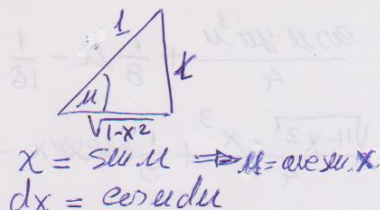 1
x
u
√1-x²
x = sin u ⇒ u = arcsin x
dx = cos u du